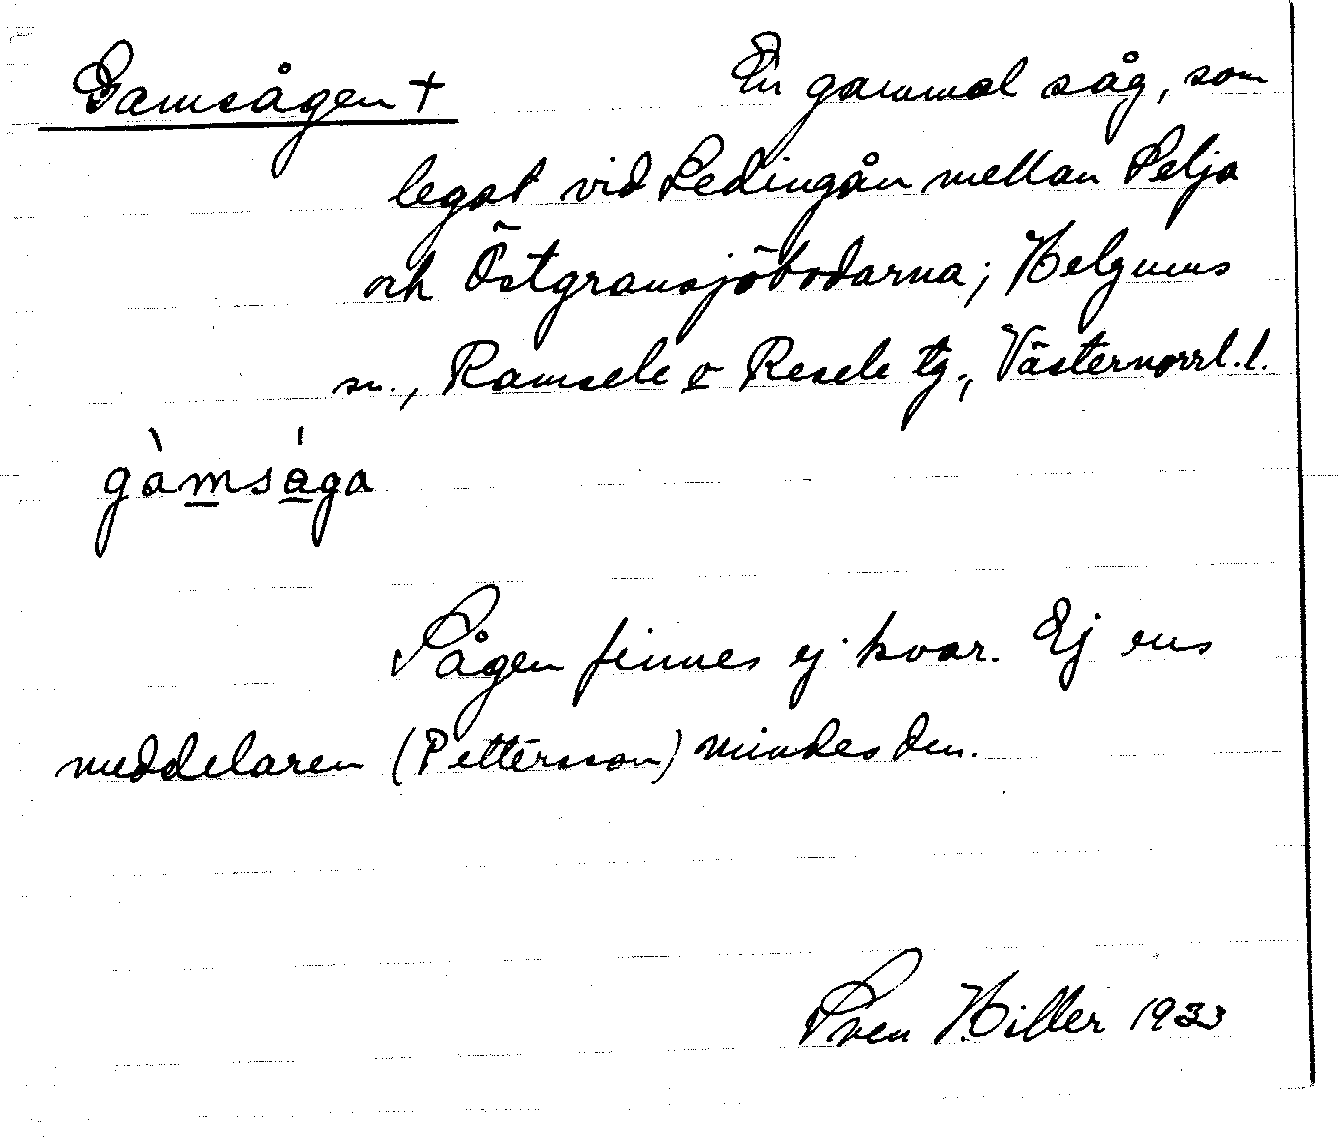 Gamsågen + En gammal såg, som
legat vid Ledingån mellan Selja
och Östgransjöbodarna; Helgums
sn., Ramsele o Resele tg., Västernorrl. l.
gàmsága
Sågen finnes ej kvar. Ej ens
meddelaren (Pettersson) mindes den.
Sven Hiller 1933